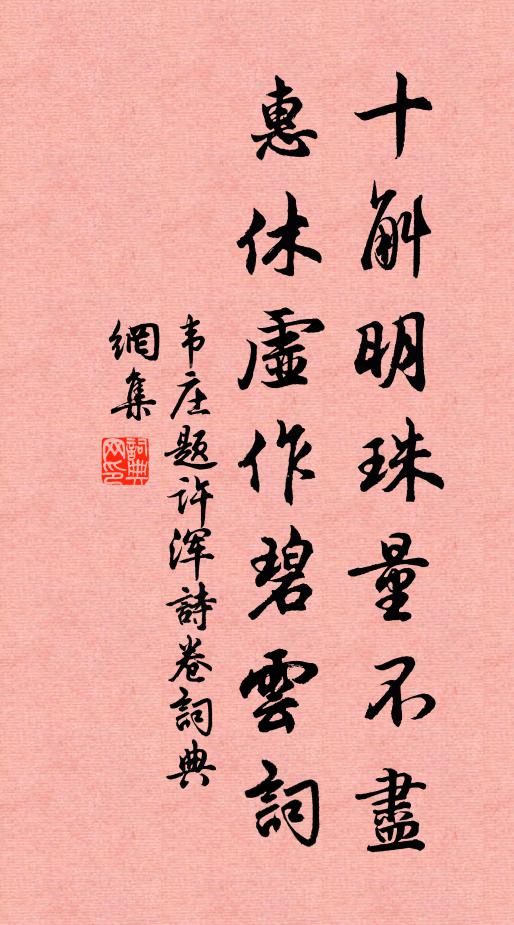 十斛明珠量不盡
惠休虛作碧雲詞
韦庄题许浑詩卷詞典
網集
詞典
网印